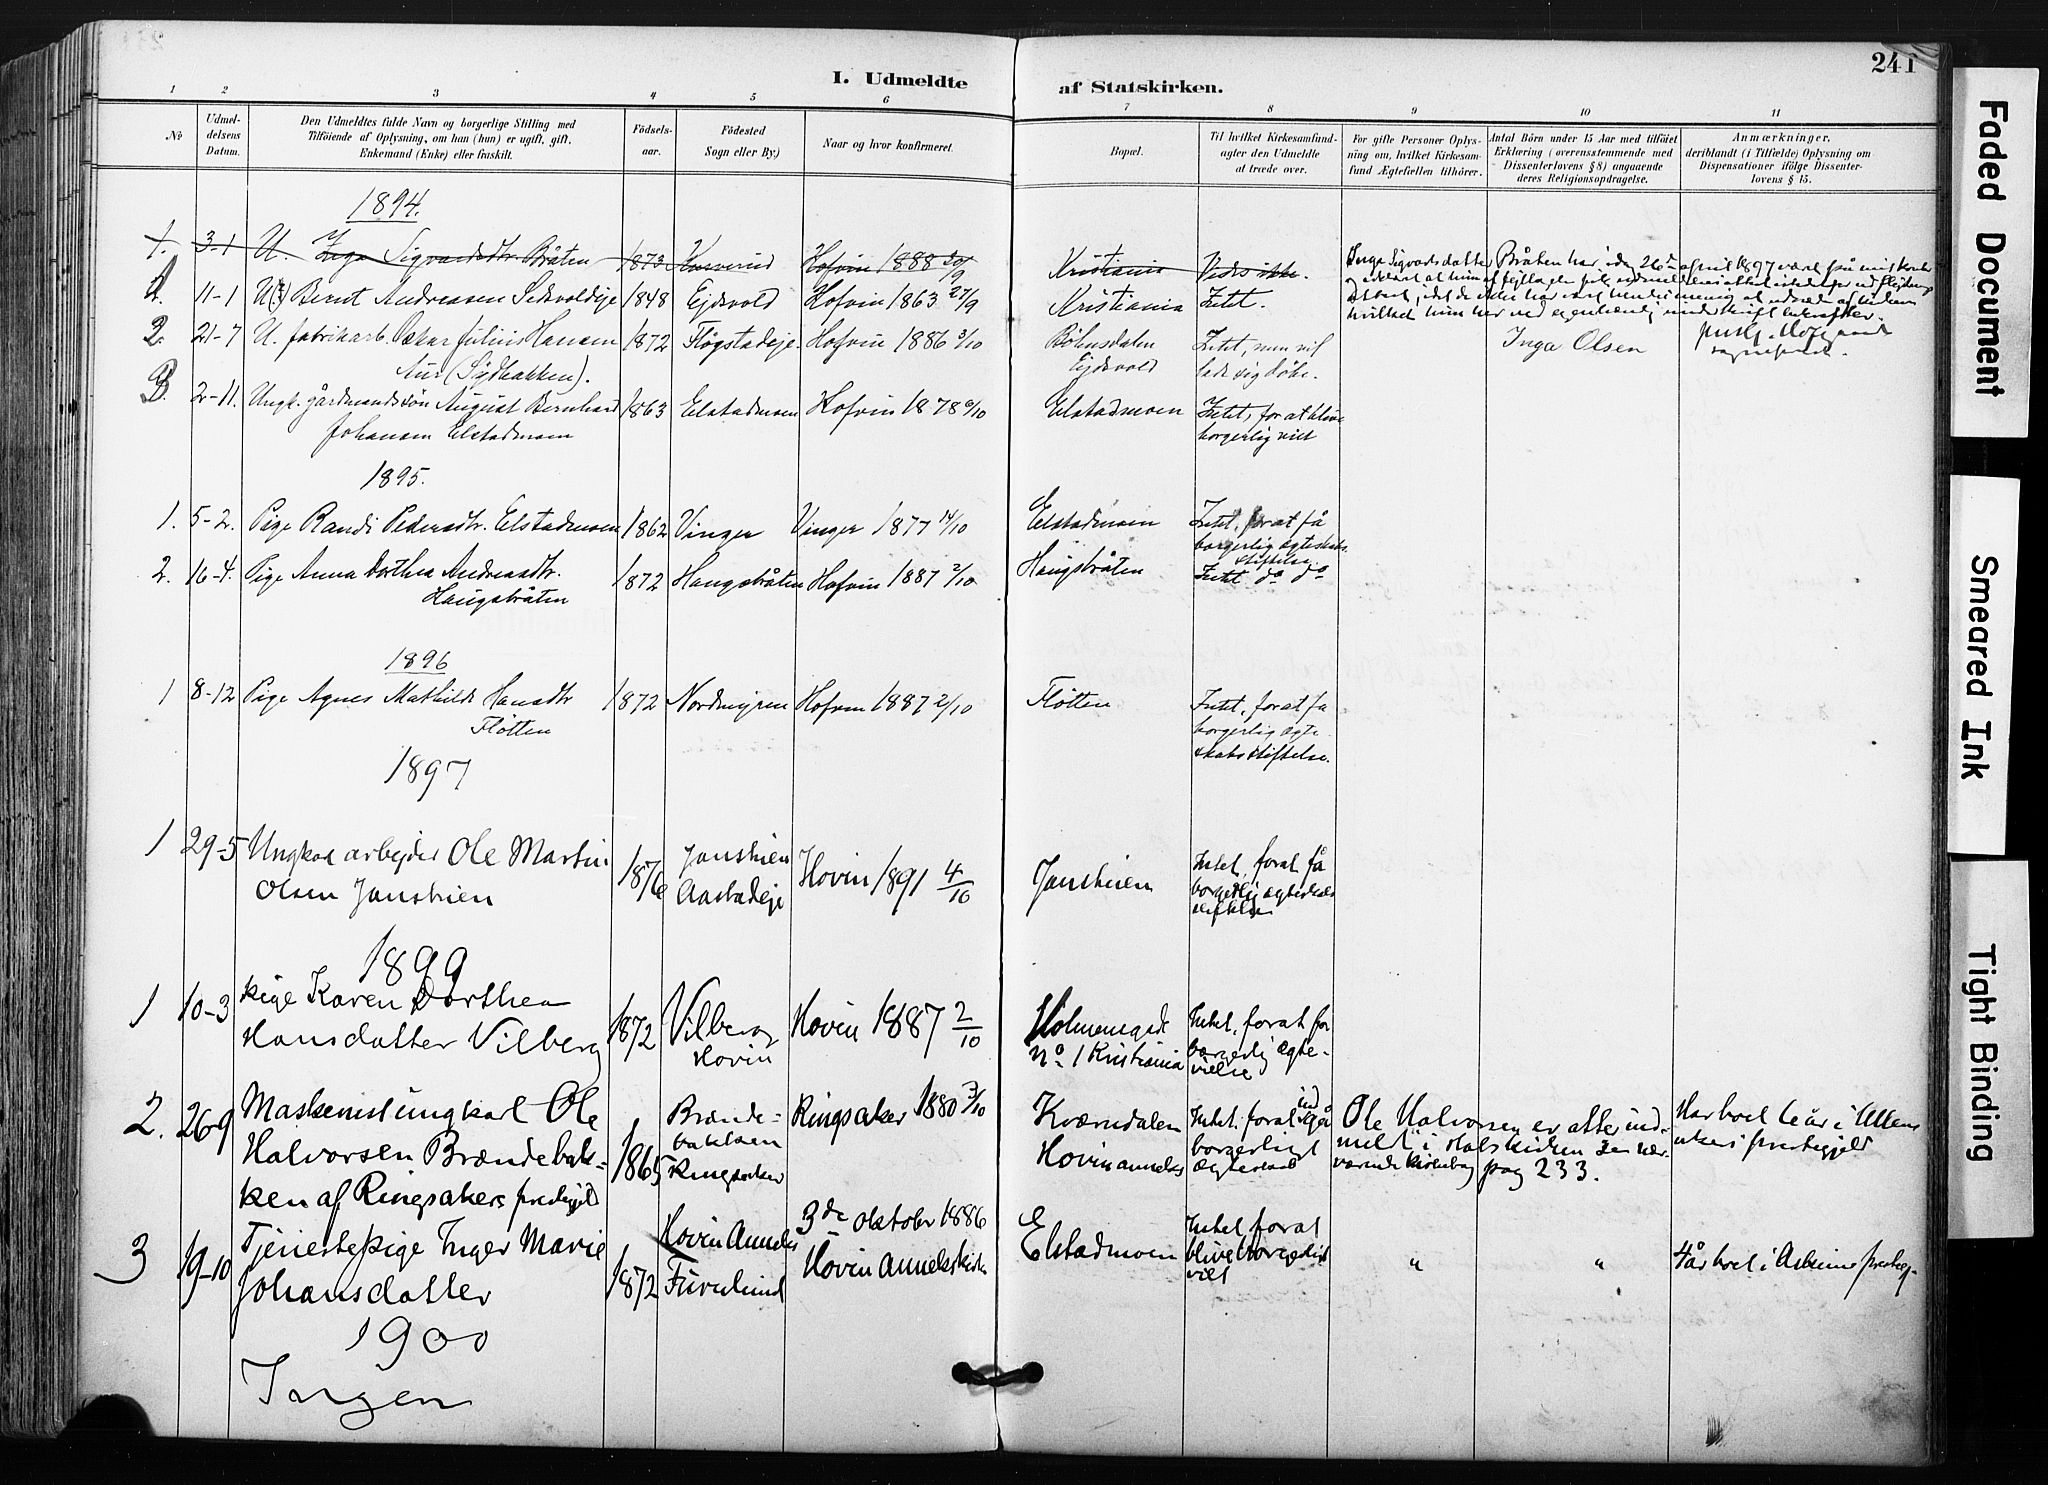 241
I. Udmeldte af Statskirken.
1 2 3 4 5 6 7 8 9 10 11
No
Udmel-
delsens
Datum.
Den Udmeldtes fulde Navn og borgerlige Stilling med
Tilföiende af Oplysning, om han (hun) er ugift, gift,
Enkemand (Enke) eller fraskilt.
Födsels-
aar.
Födested
Sogn eller By.)
Naar og hvor konfirmeret.
Bopæl.
Til hvilket Kirkesamfund-
agter den Udmeldte
at træde over.
For gifte Personer Oplys-
ning om, hvilket Kirkesam-
fund Ægtefællen tilhörer.
Antal Börn under 15 Aar med tilföiet
Erklæring (overensstemmende med
Dissenterlovens § 8) angaaende
deres Religionsopdragelse.
Anmærkninger,
deriblandt (i Tilfælde) Oplysning om
Dispensationer ifölge Dissenter-
lovens § 15.
1894.
1. 3-1 U. Inga Sigvardsdtr. Bråten 1873 Hofvin 1888 30/9 Kristiania Veds ikke.
Inga Sigvardsdatter Bråten har idag 26de april 1897 været på mit kontor
11-1 Bernt Andreasen Sedvoldeje 1848 Ejdsvold Hofvin 1863 27/9 Kristiania Intet.
2. 21-7 U. fabrikarb. Oskar Julius Hansen 1872 Flögstadeje Hofvin 1886 3/10 Böhnsdalen Intet, men vil
Aur (Sydbakken). Ejdsvold lade sig döbe.
Inga Olsen
3. 2-11. Ungk. gårdmandssön August Bernhard 1863 Elstadmoen Hofvin 1878 6/10 Elstadmoen Intet, for at blive
Johansen Elstadmoen borgerlig viet
1895.
1. 5-2. Pige Randi Pedersdtr. Elstadmoen 1862 Vinger Vinger 1877 14/10 Elstadmoen Intet, for at få
borgerlig ægteskabs
stiftelse
2. 16-4. Pige Anna Dorthea Andreasdtr. 1872 Haugsbråten Hofvin 1887 2/10 Haugsbråten Intet do do
Haugsbråten
1896
1 8-12 Pige Agnes Mathilde Hansdtr 1872 Nordmyren Hofvin 1887 2/10 Flötten Intet, for at få
Flötten borgerlig ægte-
skabsstiftelse.
1897
1 29-5 Ungkar arbejder Ole Martin 1876 Janstuen Hovin 1891 4/10 Janstuen Intet, forat få
Olsen Janstuen Aastadeje borgerlig ægteskabs
stiftelse
1899
1 10-3 Pige Karen Dorthea
Hansdatter Vilberg 1872 Vilberg Hovin 1887 2/10 Holmensgade Intet, forat få
Hovin No 1 Kristiania borgerlig ægte-
vielse
2. 26-9 Maskinist ungkarl Ole 1865 Brænde- Ringsaker 1880 3/10 Kværndalen Intet, forat indgå Ole Halvorsen er atter ind- Har boet 6 år i Ullens
Halvorsen Brændebak- bakken Hovin anneks borgerligt meldt i statskirken se nær- akers prestegjeld
ken af Ringsakers prestegjeld Ringsaker ægteskab værende kirkebog pag 233.
3 19-10 Tjenestepige Inger Marie 1872 Hovin Anneks 3de oktober 1886 Elstadmoen Intet forat " " 4 år boet i Askims presteg.
Johansdatter Furulund Hovin Annekskirke blive borgerlig
viet
1900
Ingen
Faded Document
Smeared Ink
Tight Binding